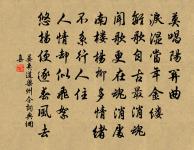 莫唱陽關曲
淚濕當年金縷
離歌自古最消魂
聞歌更在魂消處
南樓楊柳多情緒
不系行人住
人情卻似飛絮
悠揚便逐春風去
晏幾道梁州令